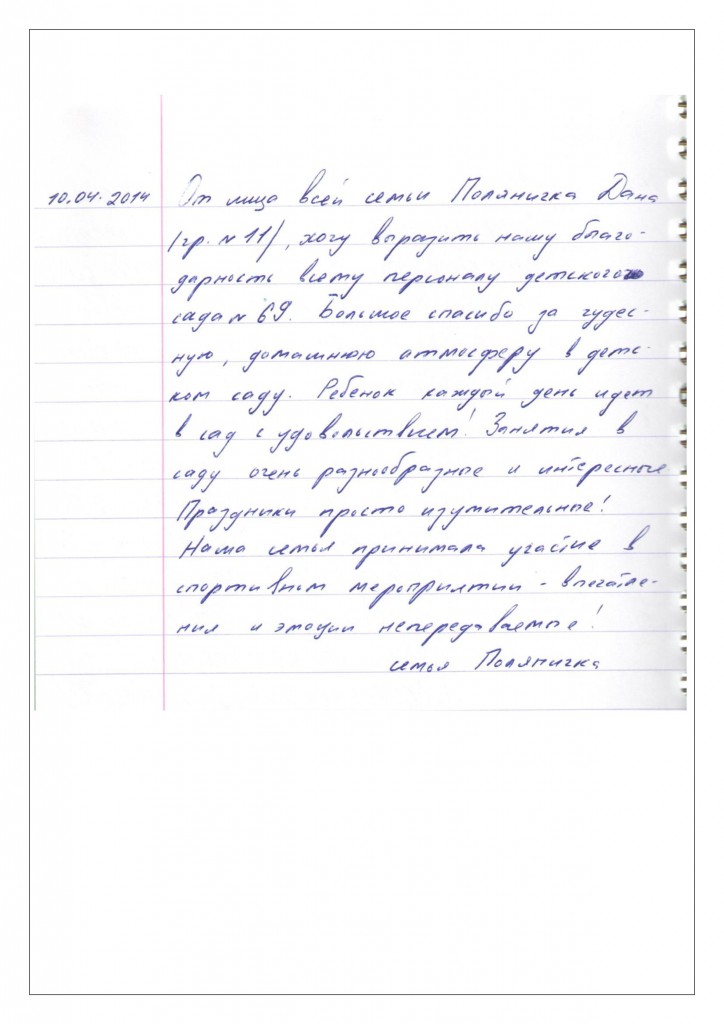 10.04.2014 От лица всей семьи Поляничка Дана
(гр. № 11), хочу выразить нашу благо-
дарность всему персоналу детского
сада № 69. Большое спасибо за чудес-
ную, домашнюю атмосферу в детс-
ком саду. Ребенок каждый день идет
в сад с удовольствием! Занятия в
саду очень разнообразные и интересные
Праздники просто изумительные!
Наша семья принимала участие в
спортивном мероприятии - впечатле-
ния и эмоции непередаваемые!
семья Поляничка